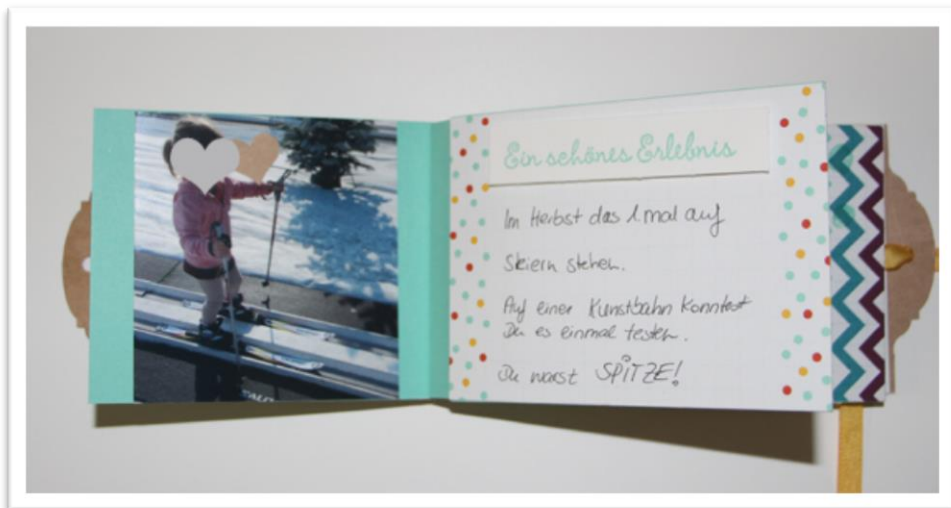 Ein schönes Erlebnis
Im Herbst das 1. mal auf
Skiern stehen.
Auf einer Kunstbahn konntest
Du es einmal testen.
Du warst SPITZE!